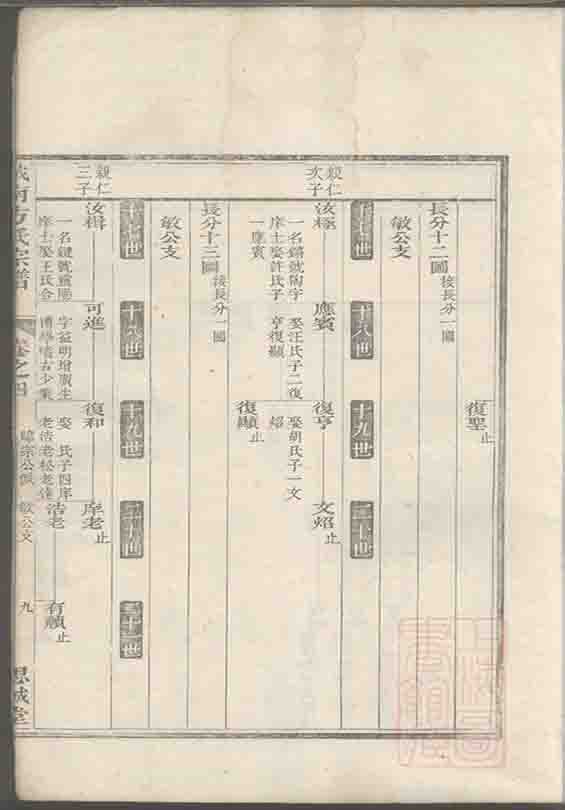 復聖止
長分十二圖
接長分一圖
敏公支
十七世
十八世
十九世
二十世
親仁
次子
汝極
應賓
復亨
文炤止
一名鏘號陶宇
庠士娶許氏子
一應賓
娶汪氏子二復
亨復顯
娶胡氏子一文
炤
復顯止
長分十三圖
接長分一圖
敏公支
十七世
十八世
十九世
二十世
二十一世
親仁
三子
汝楫
可進
復和
庠老止
一名鍵號
庠士娶王氏合
字益明增廣生
博學嗜古少業
娶 氏子四庠
老浩老松老
浩老
有禎止
城南方氏宗譜
卷之四
敏公支
九
思誠堂
上海圖書館藏